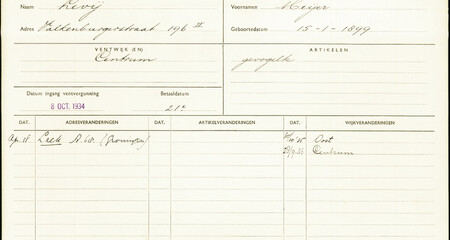 Naam Levij Voornamen Meijer
Adres Valkenburgerstraat 196 III Geboortedatum 15-1-1899
VENTWIJK (EN) ARTIKELEN
Centrum gevogelte
Datum ingang ventvergunning Betaaldatum
8 OCT. 1934 21e
DAT. ADRESVERANDERINGEN DAT. ARTIKELVERANDERINGEN DAT. WIJKVERANDERINGEN
Leek A. (Groningen) Oost
Centrum